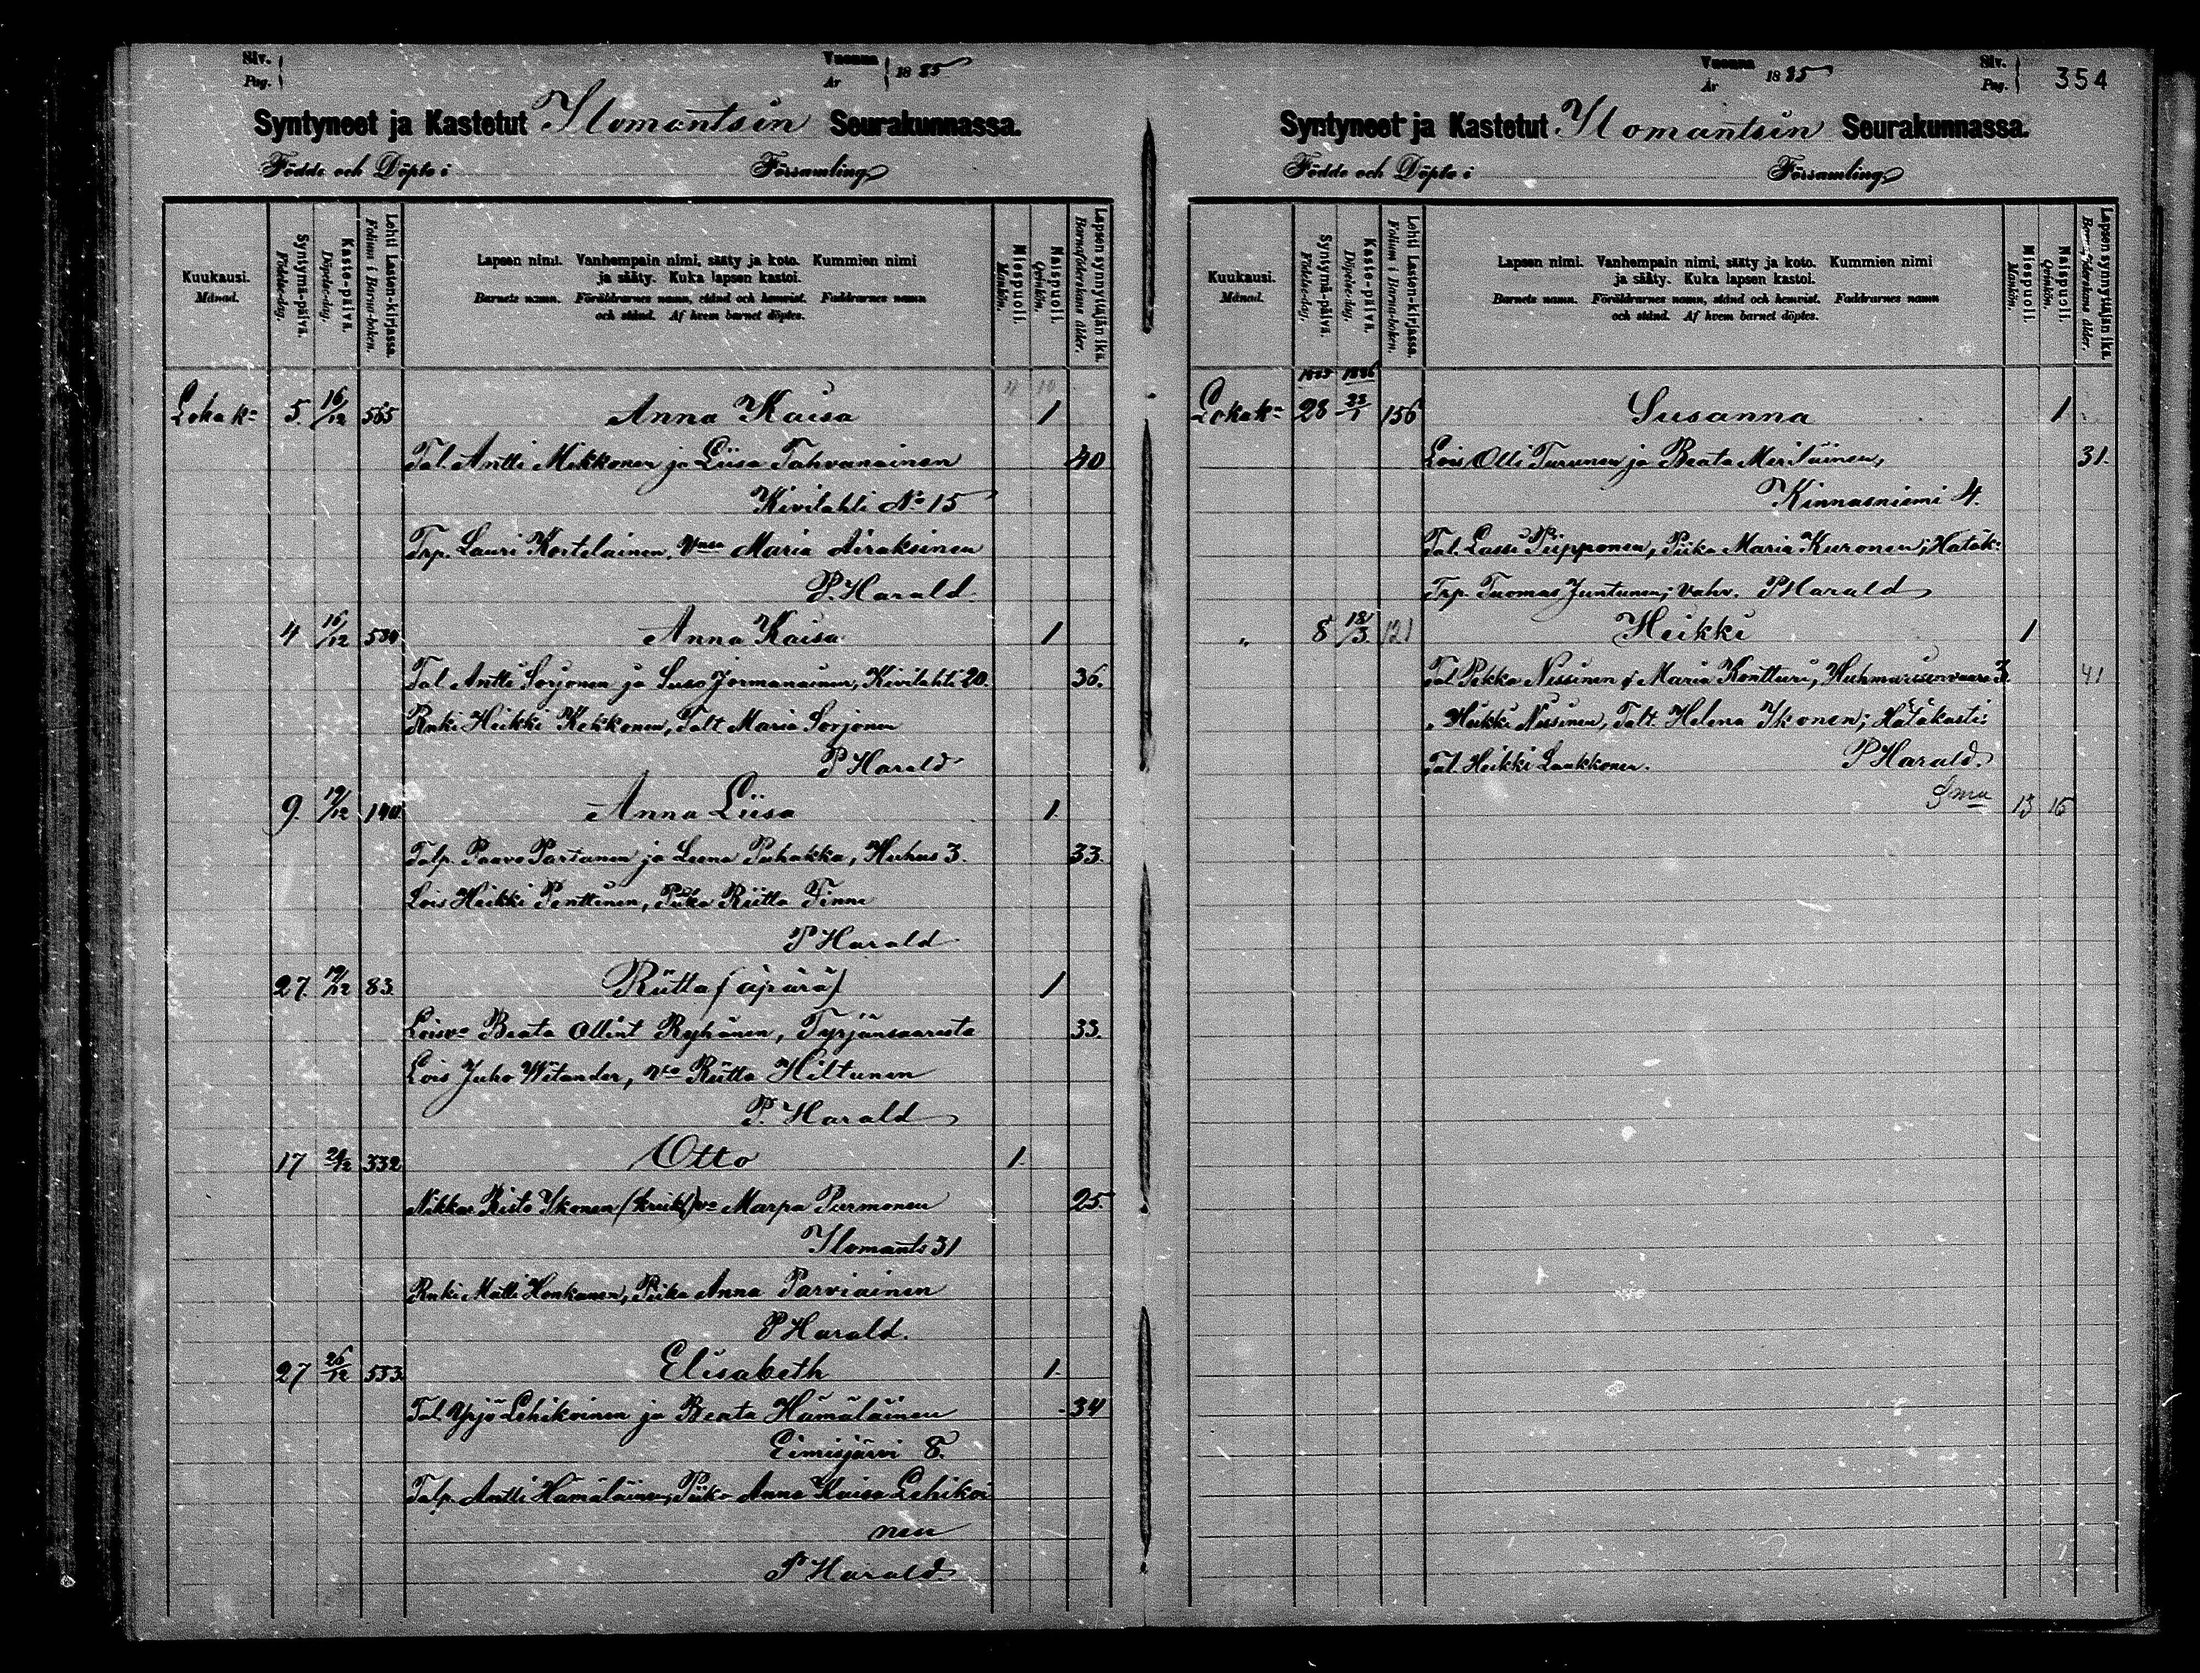 Siv.
Pag.
Vuonna
År
1885
Syntyneet ja Kastetut Ilomantsin Seurakunnassa.
Födde och Döpte i Församling
Kuukausi.
Månad.
Syntymä-päivä.
Födelse-dag.
Kaste-päivä.
Döpelse-dag.
Lehti Lasten-kirjassa.
Folium i Barna-boken.
Lapsen nimi. Vanhempain nimi, sääty ja koto. Kummien nimi
ja sääty. Kuka lapsen kastoi.
Barnets namn. Föräldrarnes namn, stånd och hemvist. Faddrarnes namn
och stånd. Af hvem barnet döptes.
Miespuoli.
Mankön.
Naispuoli.
Qvinkön.
Lapsen synnyttäjän ikä.
Barnaföderskans ålder.
11 10
Lokak: 5. 16/12 565 Anna Kaisa 1
Tal. Antti Mikkonen ja Liisa Tahvanainen 40
Kivilahti No 15
Trp. Lauri Kortelainen, Vnsa Maria Airaksinen
P. Harald
4 16/12 530 Anna Kaisa 1
Tal Antti Sorjonen ja Susa Jormanainen, Kivilahti 20. 36.
Rnki Heikki Kekkonen, Talt Maria Sorjonen
P Harald
9. 19/12 140 Anna Liisa 1
Talp. Paavo Partanen ja Leena Puhakka, Huhus 3. 33.
Lois Heikki Penttinen, Piika Riitta Tinne
P Harald
27. 19/12 83. Riitta (äpärä) 1
Loisva Beata Ollint Ryhänen, Tyrjänsaaresta 33.
Lois Juho Witander, va Riitta Hiltunen
P. Harald
17 24/12 332 Otto 1.
Nikkar Risto Ikonen (kreik) va Marpa Purmonen 25.
Ilomants 31
Rnki Matti Honkanen, Piika Anna Parviainen
P Harald.
27 26/12 553 Elisabeth 1.
Tal Yrjö Lehikoinen ja Beata Hämäläinen 34
Eimisjärvi 8.
Talp. Antti Hämäläinen, Piika Anna Kaisa Lehikoi
nen
P Harald
Vuonna
År
1885
Siv.
Pag.
354
Syntyneet ja Kastetut Ilomantsin Seurakunnassa.
Födde och Döpte i Församling
Kuukausi.
Månad.
Syntymä-päivä.
Födelse-dag.
Kaste-päivä.
Döpelse-dag.
Lehti Lasten-kirjassa.
Folium i Barna-boken.
Lapsen nimi. Vanhempain nimi, sääty ja koto. Kummien nimi
ja sääty. Kuka lapsen kastoi.
Barnets namn. Föräldrarnes namn, stånd och hemvist. Faddrarnes namn
och stånd. Af hvem barnet döptes.
Miespuoli.
Mankön.
Naispuoli.
Qvinkön.
Lapsen synnyttäjän ikä.
Barnaföderskans ålder.
1885 1886
Lokak: 28 23/1 156 Susanna 1
Lois Olli Turunen ja Beata Meriläinen, 31.
Kinnasniemi 4.
Tal. Lassi Piipponen, Piika Maria Kuronen; Hätäk:
Trp. Tuomas Juntunen; vahv. P Harald
" 8 18/3. 121 Heikki 1
Tal Pekka Nissinen & Maria Kontturi, Huhmarisenvaara 3. 41
" Heikki Nissinen, Talt. Helena Ikonen; Hätäkasti:
Tal. Heikki Laukkonen. P Harald.
Sma 13 16